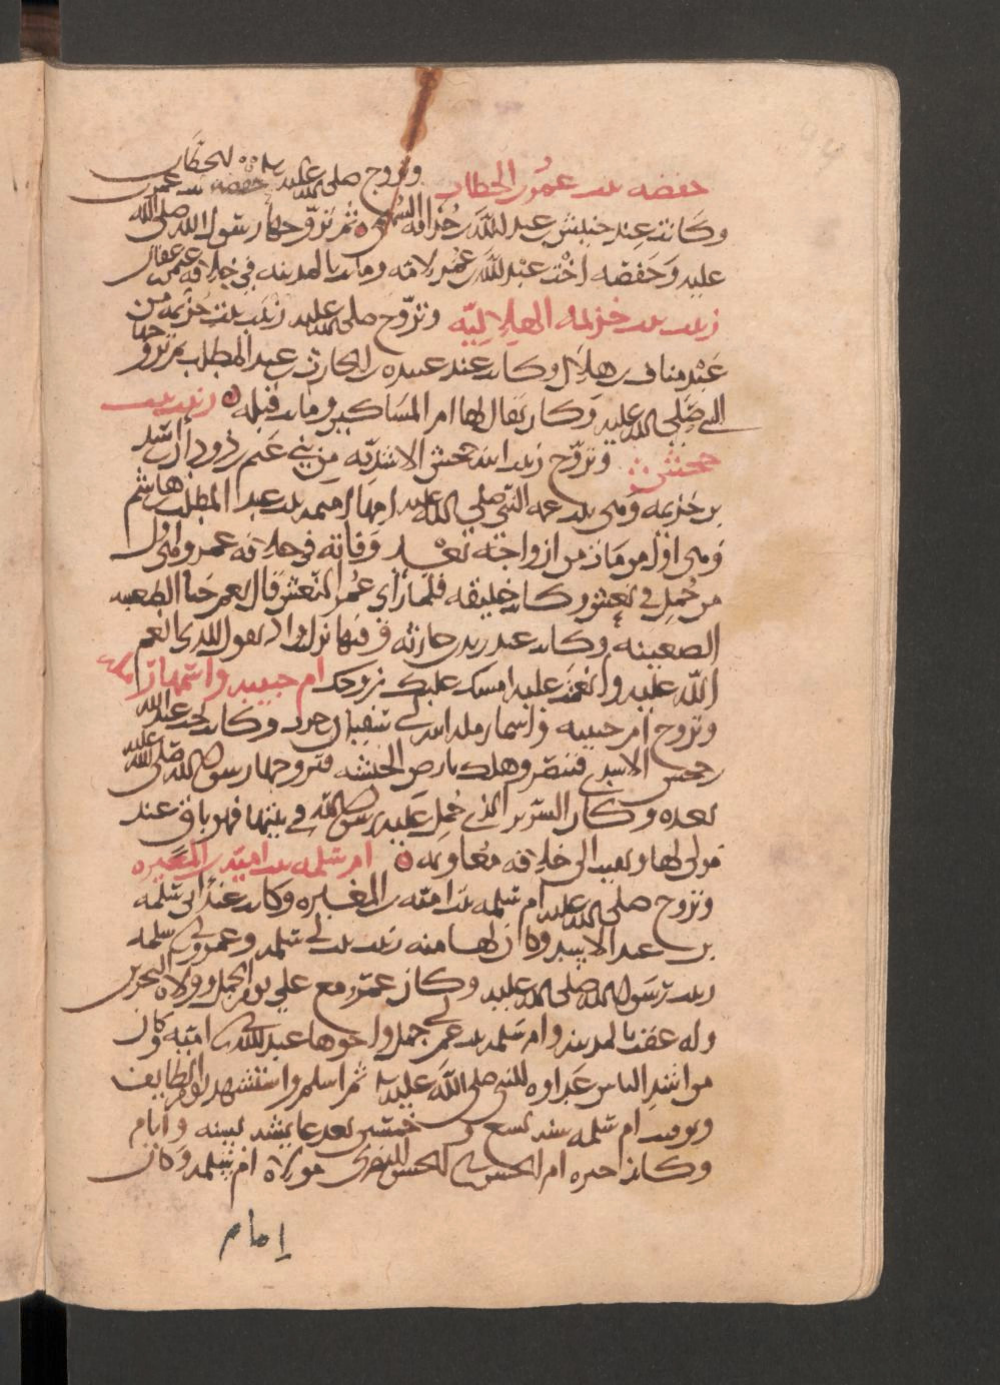 حفصه بنت عمر بن الخطاب وتزوج صلى الله عليه حفصه بنت عمر بن الخطاب
وكانت عند خنيس بن عبد الله بن حذافه السهمي ثم تزوجها رسول الله صلى الله
عليه وحفصه اخت عبد الله بن عمر لامه وماتت بالمدينه في خلافه عثمن بن عفان
زينب بنت خزيمه الهلاليه وتزوج صلى الله عليه زينب بنت خزيمه من
عبد مناف بن هلال وكانت عند عبيده بن الحارث بن عبد المطلب ثم تزوجها
النبي صلى الله عليه وكان يقال لها ام المساكين وماتت قبله زينب بنت
جحش وتزوج زينب ابنه جحش الاسديه من بني غنم بن دودان بن اسد
بن خزيمه وهي بنت عمه النبي صلى الله عليه امها اميمه بنت عبد المطلب بن هاشم
وهي اول من مات من ازواجه بعد وفاته في خلافه عمر وهي اول
من حمل في نعش وكانت خليقه فلما رأى عمر النعش قال نعم خبا الظعينه
الظعينه وكانت عند زيد بن حارثه ففيها نزل واذ تقول للذي انعم
الله عليه وانعمت عليه امسك عليك زوجك ام حبيبه واسمها رمله
وتزوج ام حبيبه واسمها رمله ابنه ابي سفيان بن حرب وكانت تحت عبيد الله
بن جحش الاسدي فتنصر وهلك بارض الحبشه فتزوجها رسول الله صلى الله عليه
بعده وكان السرير الذي حمل عليه رسول الله في بيتها فهو باق عند
مولى لها وبقيت الى خلافه معاويه ام سلمه بنت ابي اميه بن المغيره
وتزوج صلى الله عليه ام سلمه بنت ابي اميه بن المغيره وكانت عند ابي سلمه
بن عبد الاسد وكان لها منه زينب بنت ابي سلمه وعمر بن ابي سلمه
ربيب رسول الله صلى الله عليه وكان عمر مع علي يوم الجمل وولاه البحرين
وله عقب بالمدينه وام سلمه بنت عم ابي جهل واخوها عبد الله بن ابي اميه كان
من اشد الناس عداوه للنبي صلى الله عليه ثم اسلم واستشهد يوم الطايف
وتوفيت ام سلمه سنه تسع وخمسين بعد عايشه بسنه وايام
وكانت خيره ام الحسن بن ابي الحسن البصري مولاه ام سلمه وكان
امام